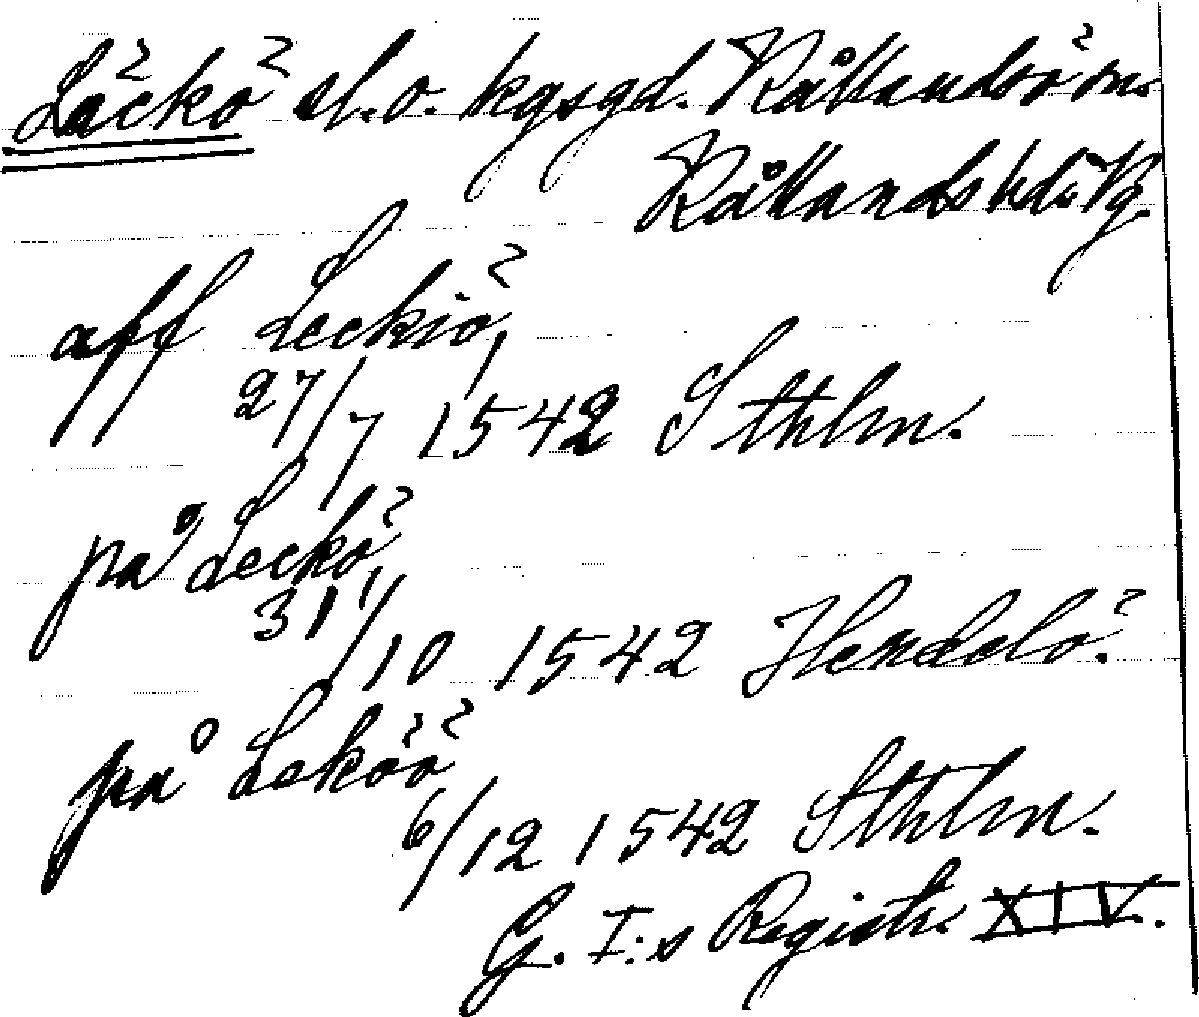 Läckö sl. o. kgsgd. Kållandsö sn.
Kållands hd. Vg.
aff Leckiö,
27/7 1542 Sthlm.
på Leckö,
31/10 1542 Hendelö.
på Leköö,
6/12 1542 Sthlm.
G. I:s Registr. XIV.